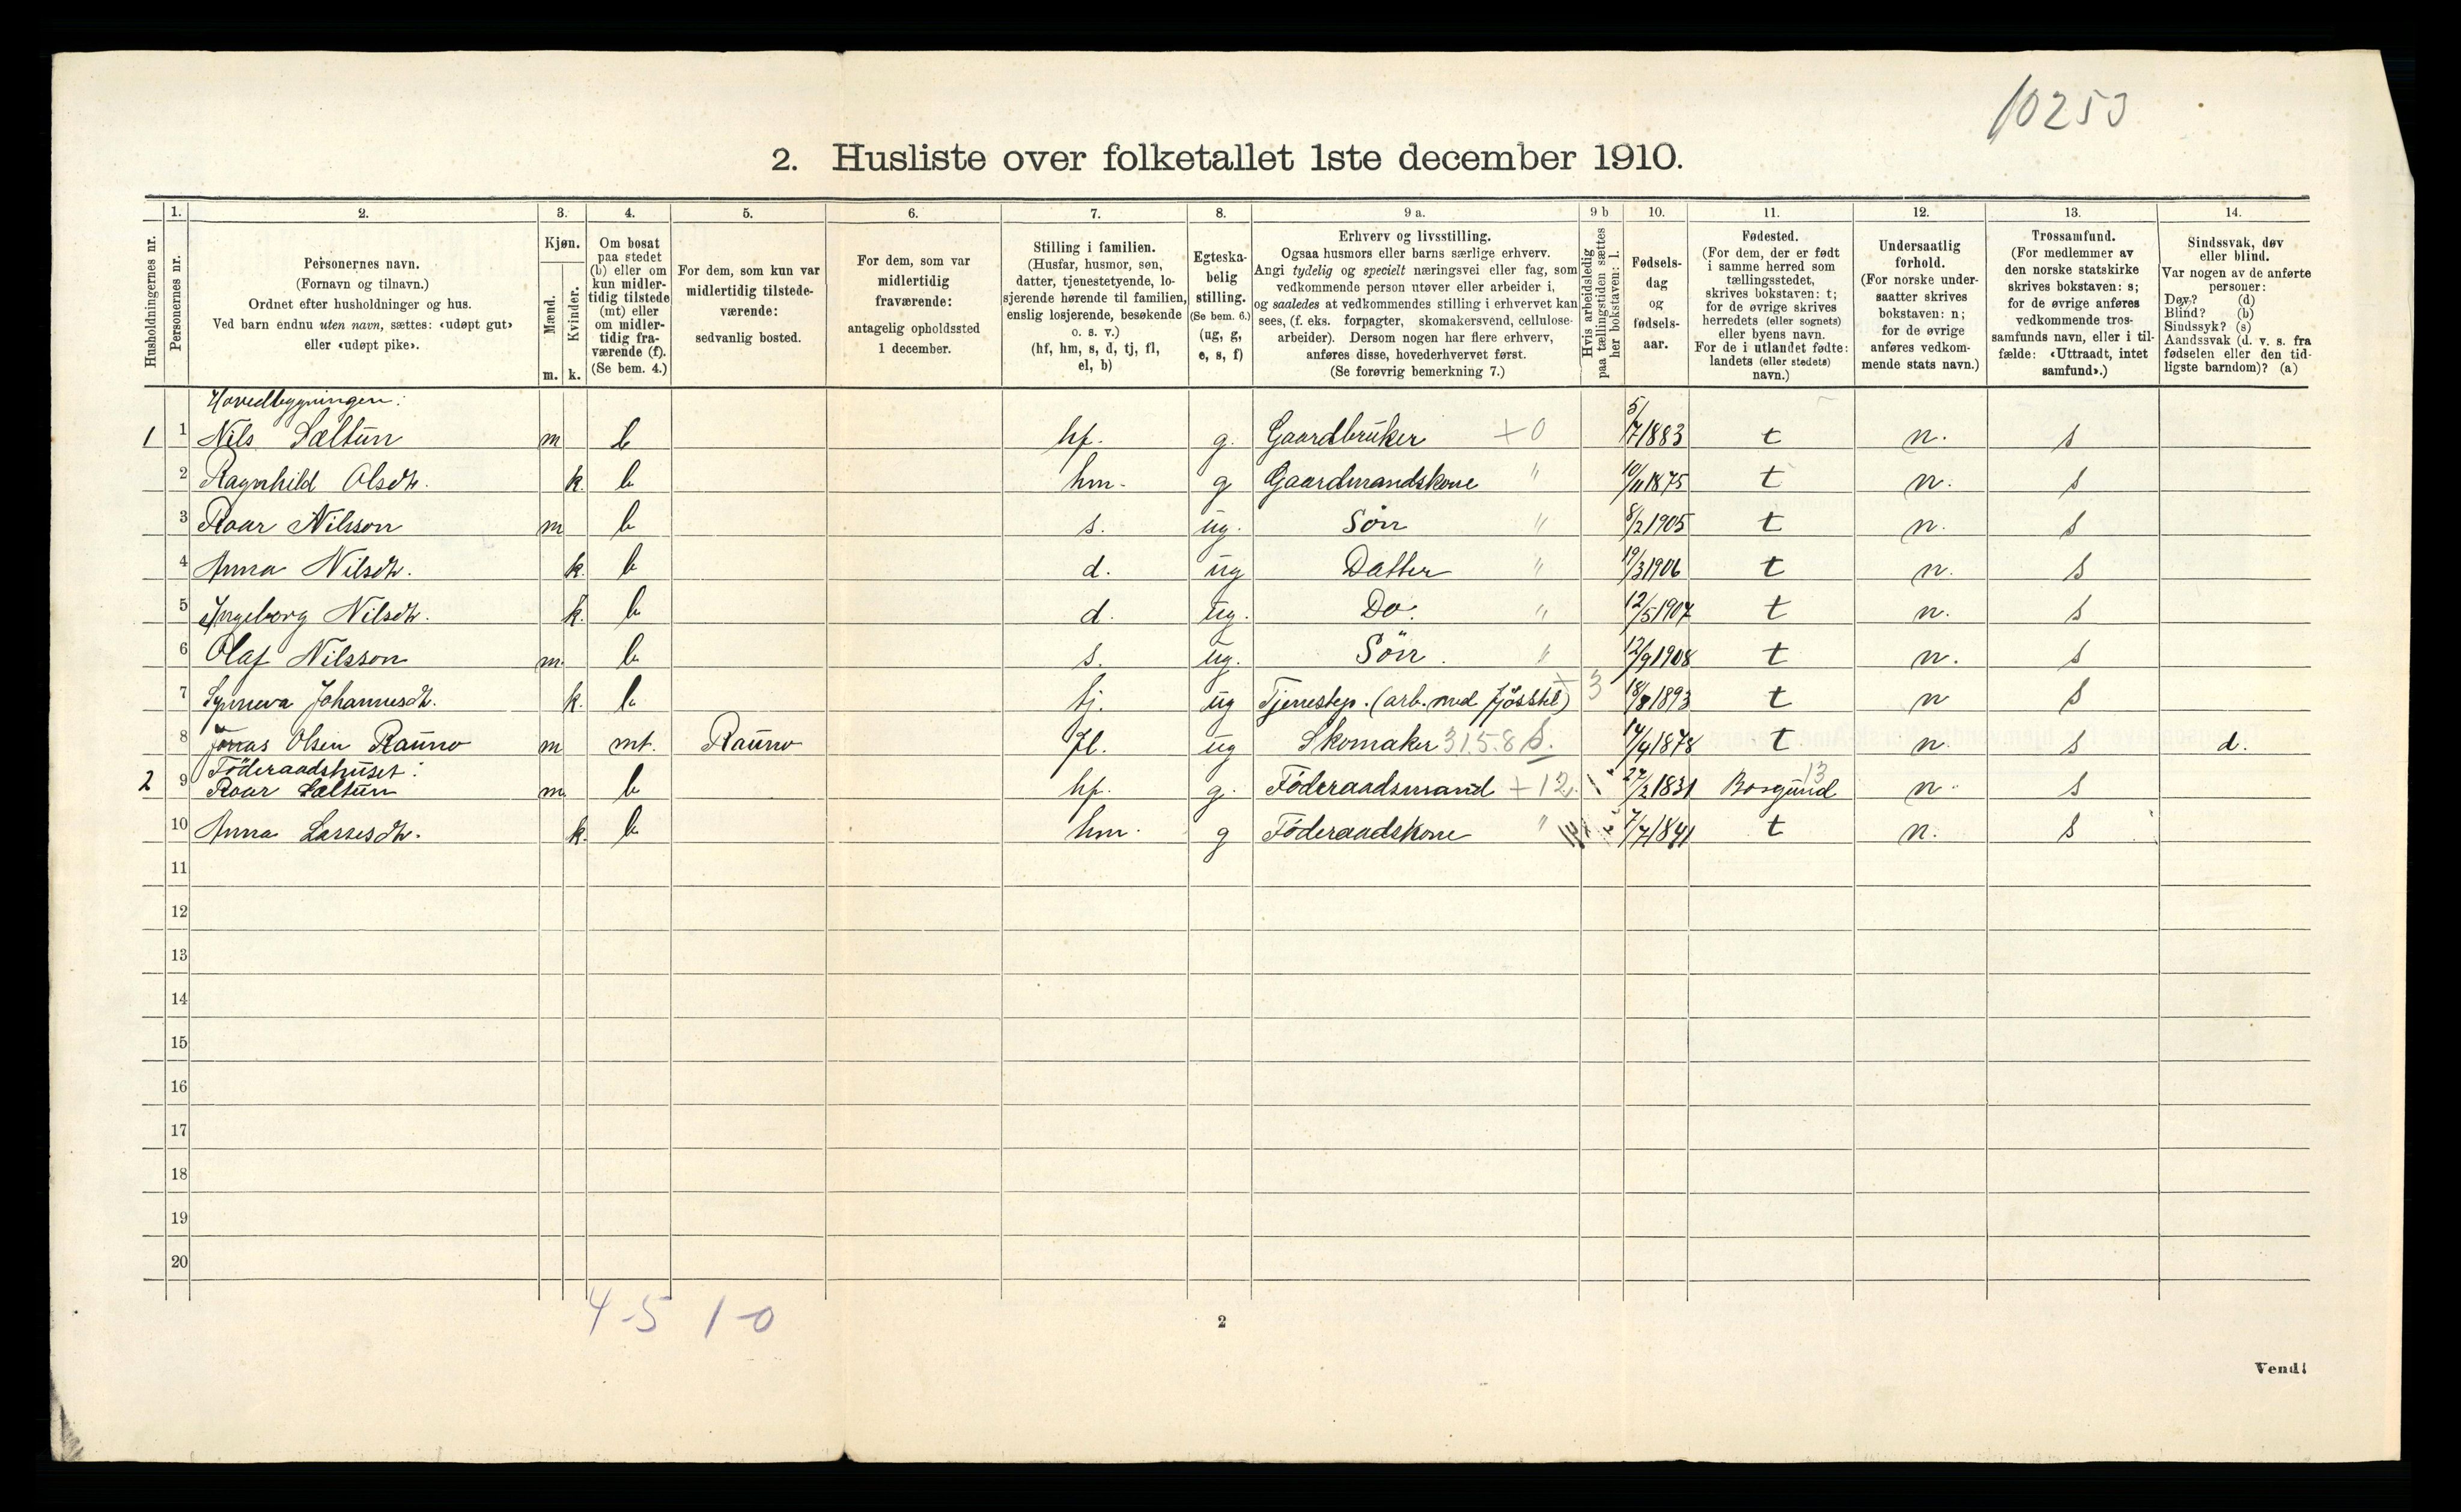 10253
2. Husliste over folketallet 1ste december 1910.
Husholdningernes nr.
1. Personernes nr.
2. Personernes navn.
(Fornavn og tilnavn.)
Ordnet efter husholdninger og hus.
Ved barn endnu uten navn, sættes: «udøpt gut»
eller «udøpt pike».
3. Kjøn.
Mænd. m.
Kvinder. k.
4. Om bosat
paa stedet
(b) eller om
kun midler-
tidig tilstede
(mt) eller
om midler-
tidig fra-
værende (f).
(Se bem. 4.)
5. For dem, som kun var
midlertidig tilstede-
værende:
sedvanlig bosted.
6. For dem, som var
midlertidig
fraværende:
antagelig opholdssted
1 december.
7. Stilling i familien.
(Husfar, husmor, søn,
datter, tjenestetyende, lo-
sjerende hørende til familien,
enslig losjerende, besøkende
o. s. v.)
(hf, hm, s, d, tj, fl,
el, b)
8. Egteska-
belig
stilling.
(Se bem. 6.)
(ug, g,
e, s, f)
9 a. Erhverv og livsstilling.
Ogsaa husmors eller barns særlige erhverv.
Angi tydelig og specielt næringsvei eller fag, som
vedkommende person utøver eller arbeider i,
og saaledes at vedkommendes stilling i erhvervet kan
sees, (f. eks. forpagter, skomakersvend, cellulose-
arbeider). Dersom nogen har flere erhverv,
anføres disse, hovederhvervet først.
(Se forøvrig bemerkning 7.)
9 b Hvis arbeidsledig
paa tællingstiden sættes
her bokstaven: l.
10. Fødsels-
dag
og
fødsels-
aar.
11. Fødested.
(For dem, der er født
i samme herred som
tællingsstedet,
skrives bokstaven: t;
for de øvrige skrives
herredets (eller sognets)
eller byens navn.
For de i utlandet fødte:
landets (eller stedets)
navn.)
12. Undersaatlig
forhold.
(For norske under-
saatter skrives
bokstaven: n;
for de øvrige
anføres vedkom-
mende stats navn.)
13. Trossamfund.
(For medlemmer av
den norske statskirke
skrives bokstaven: s;
for de øvrige anføres
vedkommende tros-
samfunds navn, eller i til-
fælde: «Uttraadt, intet
samfund».)
14. Sindssvak, døv
eller blind.
Var nogen av de anførte
personer:
Døv? (d)
Blind? (b)
Sindssyk? (s)
Aandssvak (d. v. s. fra
fødselen eller den tid-
ligste barndom)? (a)
Hovedbygningen:
1 1 Nils Sæltun m b hf. g. Gaardbruker +0 5/7 1883 t n. s
2 Ragnhild Olsdtr. k. b hm. g Gaardmandskone " 10/11 1875 t n. s
3 Roar Nilsson m b s. ug. Sön " 8/2 1905 t n. s
4 Anna Nilsdtr. k. b d. ug Datter " 19/3 1906 t n. s
5 Ingeborg Nilsdtr. k. b d. ug. Do. " 12/5 1907 t n. s
6 Olaf Nilsson m. b s. ug. Sön. " 12/9 1908 t n. s
7 Synneva Johannesdtr. k. b tj. ug Tjenestep. (arb. med fjösstel) 3 18/8 1893 t n s
8 Jonas Olsen Rauno m mt. Rauno fl. ug Skomaker 31.5.8 S. 14/4 1878 t n. s d.
Föderaadshuset:
2 9 Roar Sæltun m b hf. g. Föderaadsmand +12. 27/2 1831 Borgund 13 n. s
10 Anna Lassesdtr. k. b hm. g Föderaadskone " 7/7 1841 t n. s
11
12
13
14
15
16
17
18
19
20
4-5 1-0
2
Vend!